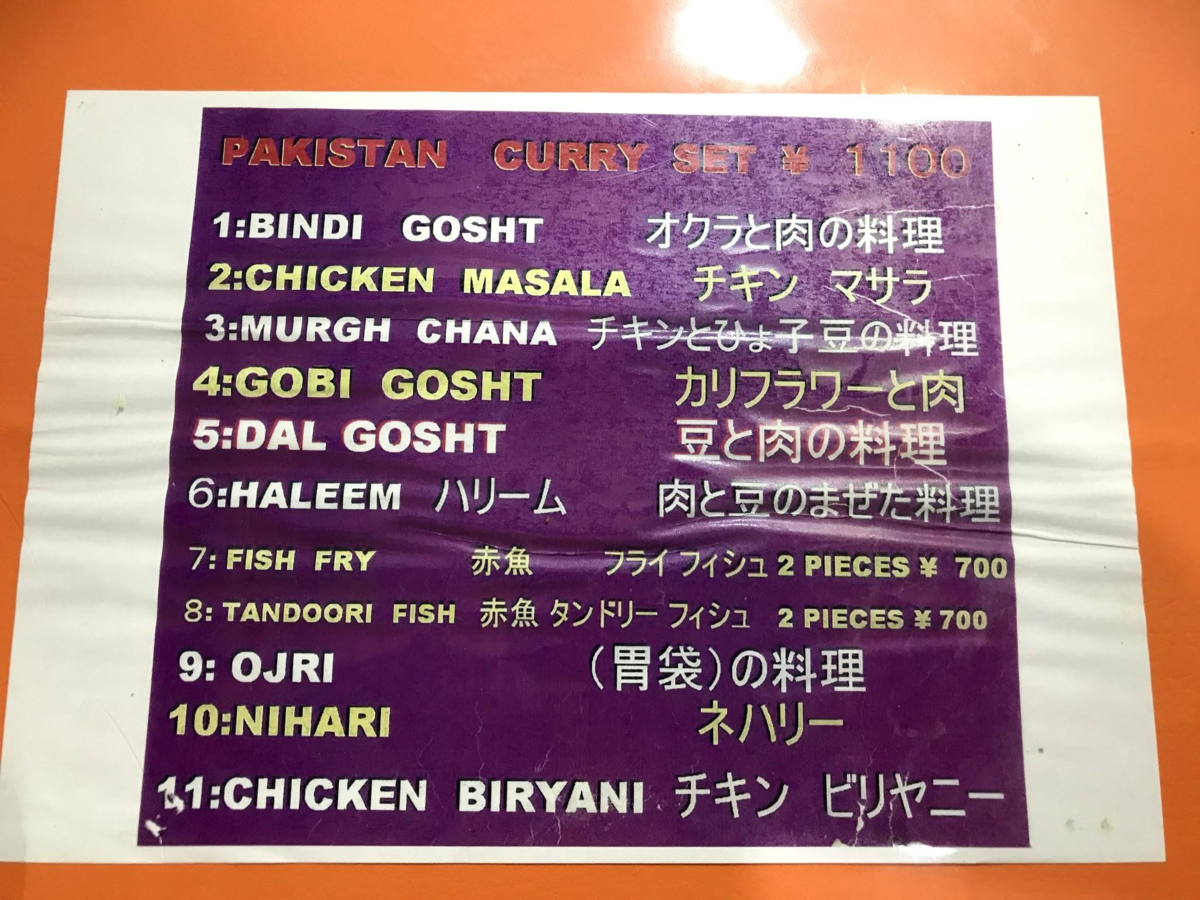 PAKISTAN CURRY SET ¥ 1100
1:BINDI GOSHT オクラと肉の料理
2:CHICKEN MASALA チキン マサラ
3:MURGH CHANA チキンとひょ子豆の料理
4:GOBI GOSHT カリフラワーと肉
5:DAL GOSHT 豆と肉の料理
6:HALEEM ハリーム 肉と豆のまぜた料理
7: FISH FRY 赤魚 フライ フィシュ 2 PIECES ¥ 700
8: TANDOORI FISH 赤魚 タンドリー フィシュ 2 PIECES ¥ 700
9: OJRI （胃袋）の料理
10:NIHARI ネハリー
11:CHICKEN BIRYANI チキン ビリヤニー